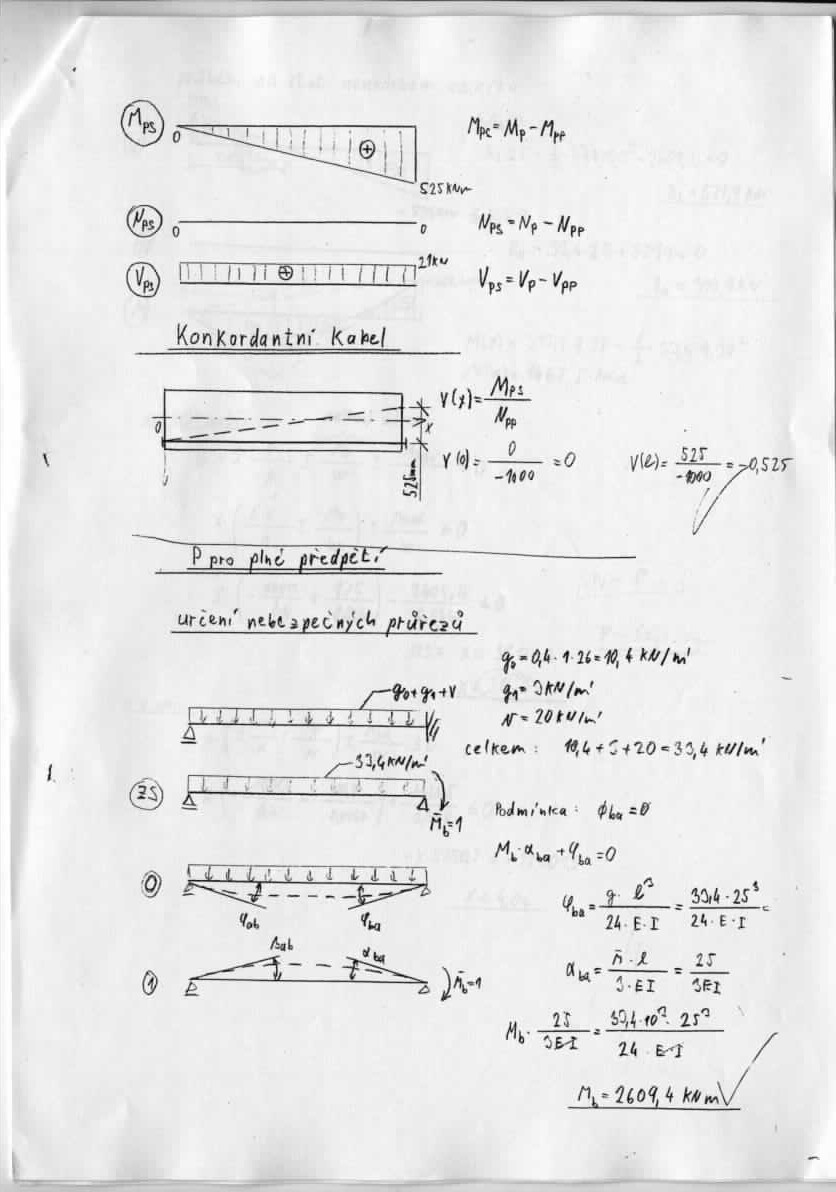 Mps
0
⊕
525 kNm
Mpc = Mp - Mpp
Nps
0
0
Nps = Np - Npp
Vps
⊕
21kN
Vps = Vp - Vpp
Konkordantní Kabel
0
x
525mm
v(x) = Mps / Npp
v(0) = 0 / -1000 = 0
v(l) = 525 / -1000 = -0,525
P pro plné předpětí
určení nebezpečných průřezů
g0 = 0,4 · 1 · 26 = 10,4 kN/m'
g0+g1+v
g1 = 3 kN/m'
v = 20 kN/m'
celkem : 10,4 + 3 + 20 = 33,4 kN/m'
33,4 kN/m'
ZS
M̄b=1
Podmínka : ϕba = 0
Mb · αba + φba = 0
0
φab
φba
φba = g · l³ / 24 · E · I = 33,4 · 25³ / 24 · E · I =
1
βab
αba
M̄b=1
αba = m̄ · l / 3 · EI = 25 / 3EI
Mb · 25 / 3EI = 33,4·10³ · 25³ / 24 · E·I
Mb = 2609,4 kNm